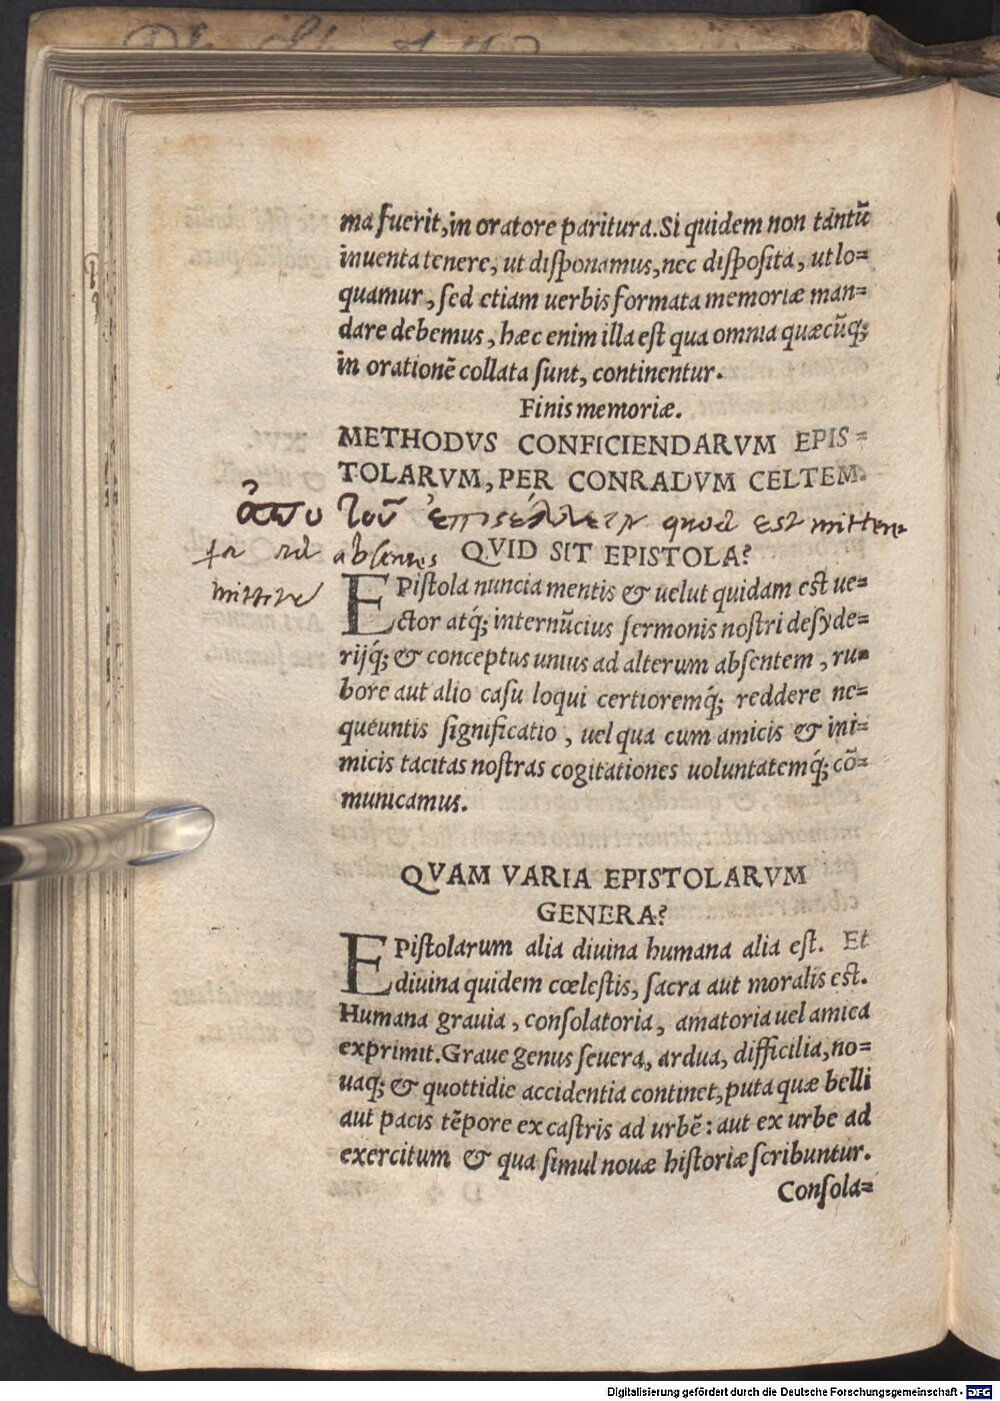 ma fuerit, in oratore paritura. Si quidem non tantū
inuenta tenere, ut disponamus, nec disposita, ut lo=
quamur, sed etiam uerbis formata memoriæ man=
dare debemus, hæc enim illa est qua omnia quæcūq;
in orationē collata sunt, continentur.
Finis memoriæ.
METHODVS CONFICIENDARVM EPIS=
TOLARVM, PER CONRADVM CELTEM.
ἀπὸ τοῦ ἐπιστέλλειν quod est mittere
ad absentes
QVID SIT EPISTOLA?
mittere
EPistola nuncia mentis & uelut quidam est ue=
ctor atq́; internūcius sermonis nostri desyde=
rijq́; & conceptus unius ad alterum absentem, ru=
bore aut alio casu loqui certioremq́; reddere ne=
queuntis significatio, uel qua cum amicis & ini=
micis tacitas nostras cogitationes uoluntatemq́; cō=
municamus.
QVAM VARIA EPISTOLARVM
GENERA?
EPistolarum alia diuina humana alia est. Et
diuina quidem cœlestis, sacra aut moralis est.
Humana grauia, consolatoria, amatoria uel amica
exprimit. Graue genus seuera, ardua, difficilia, no=
uaq; & quottidie accidentia continet, puta quæ belli
aut pacis tēpore ex castris ad urbē: aut ex urbe ad
exercitum & qua simul nouæ historiæ scribuntur.
Consola=
Digitalisierung gefördert durch die Deutsche Forschungsgemeinschaft - DFG